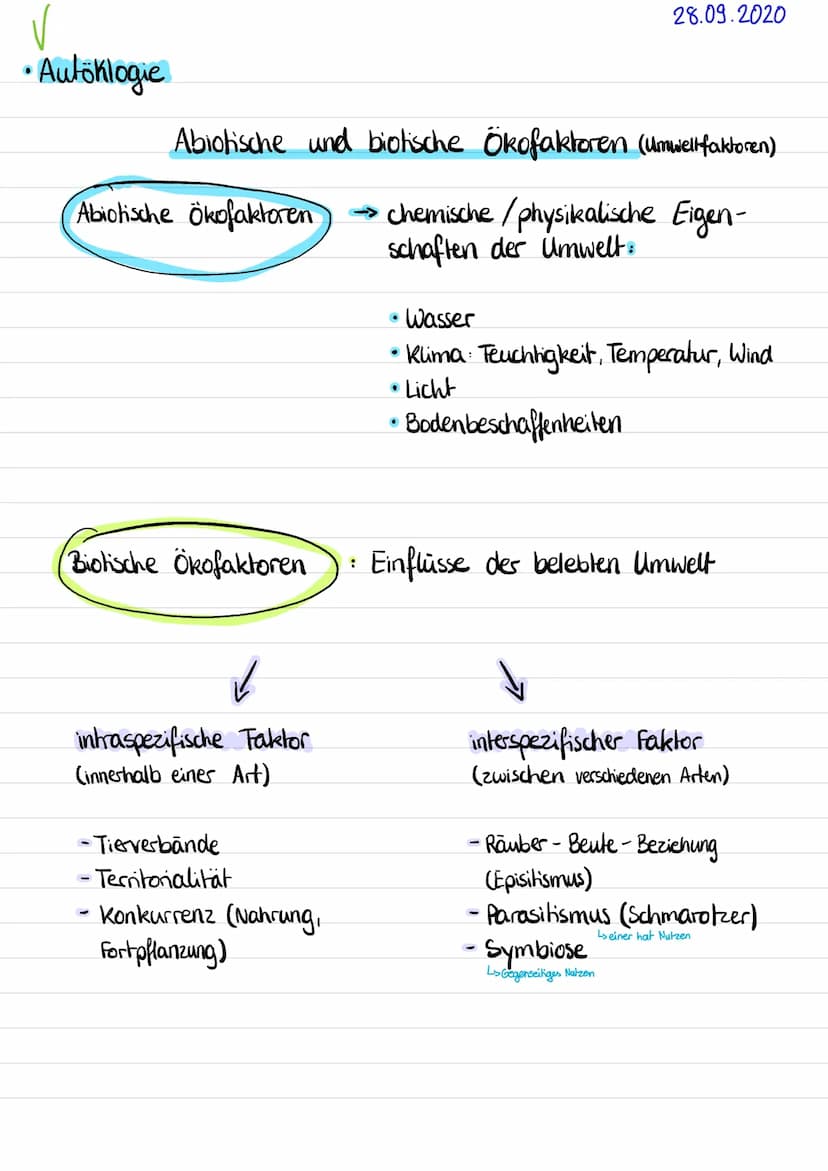 28.09.2020
• Autöklogie
Abiotische und biotische Ökofaktoren (Umweltfaktoren)
Abiotische Ökofaktoren → chemische / physikalische Eigen-
schaften der Umwelt:
• Wasser
• Klima: Feuchtigkeit, Temperatur, Wind
• Licht
• Bodenbeschaffenheiten
Biotische Ökofaktoren : Einflüsse der belebten Umwelt
intraspezifische Faktor
(innerhalb einer Art)
- Tierverbände
- Territorialität
- Konkurrenz (Nahrung,
Fortpflanzung)
interspezifischer Faktor
(zwischen verschiedenen Arten)
- Räuber - Beute - Beziehung
(Episitismus)
- Parasitismus (Schmarotzer)
↳ einer hat Nutzen
- Symbiose
↳ Gegenseitiges Nutzen